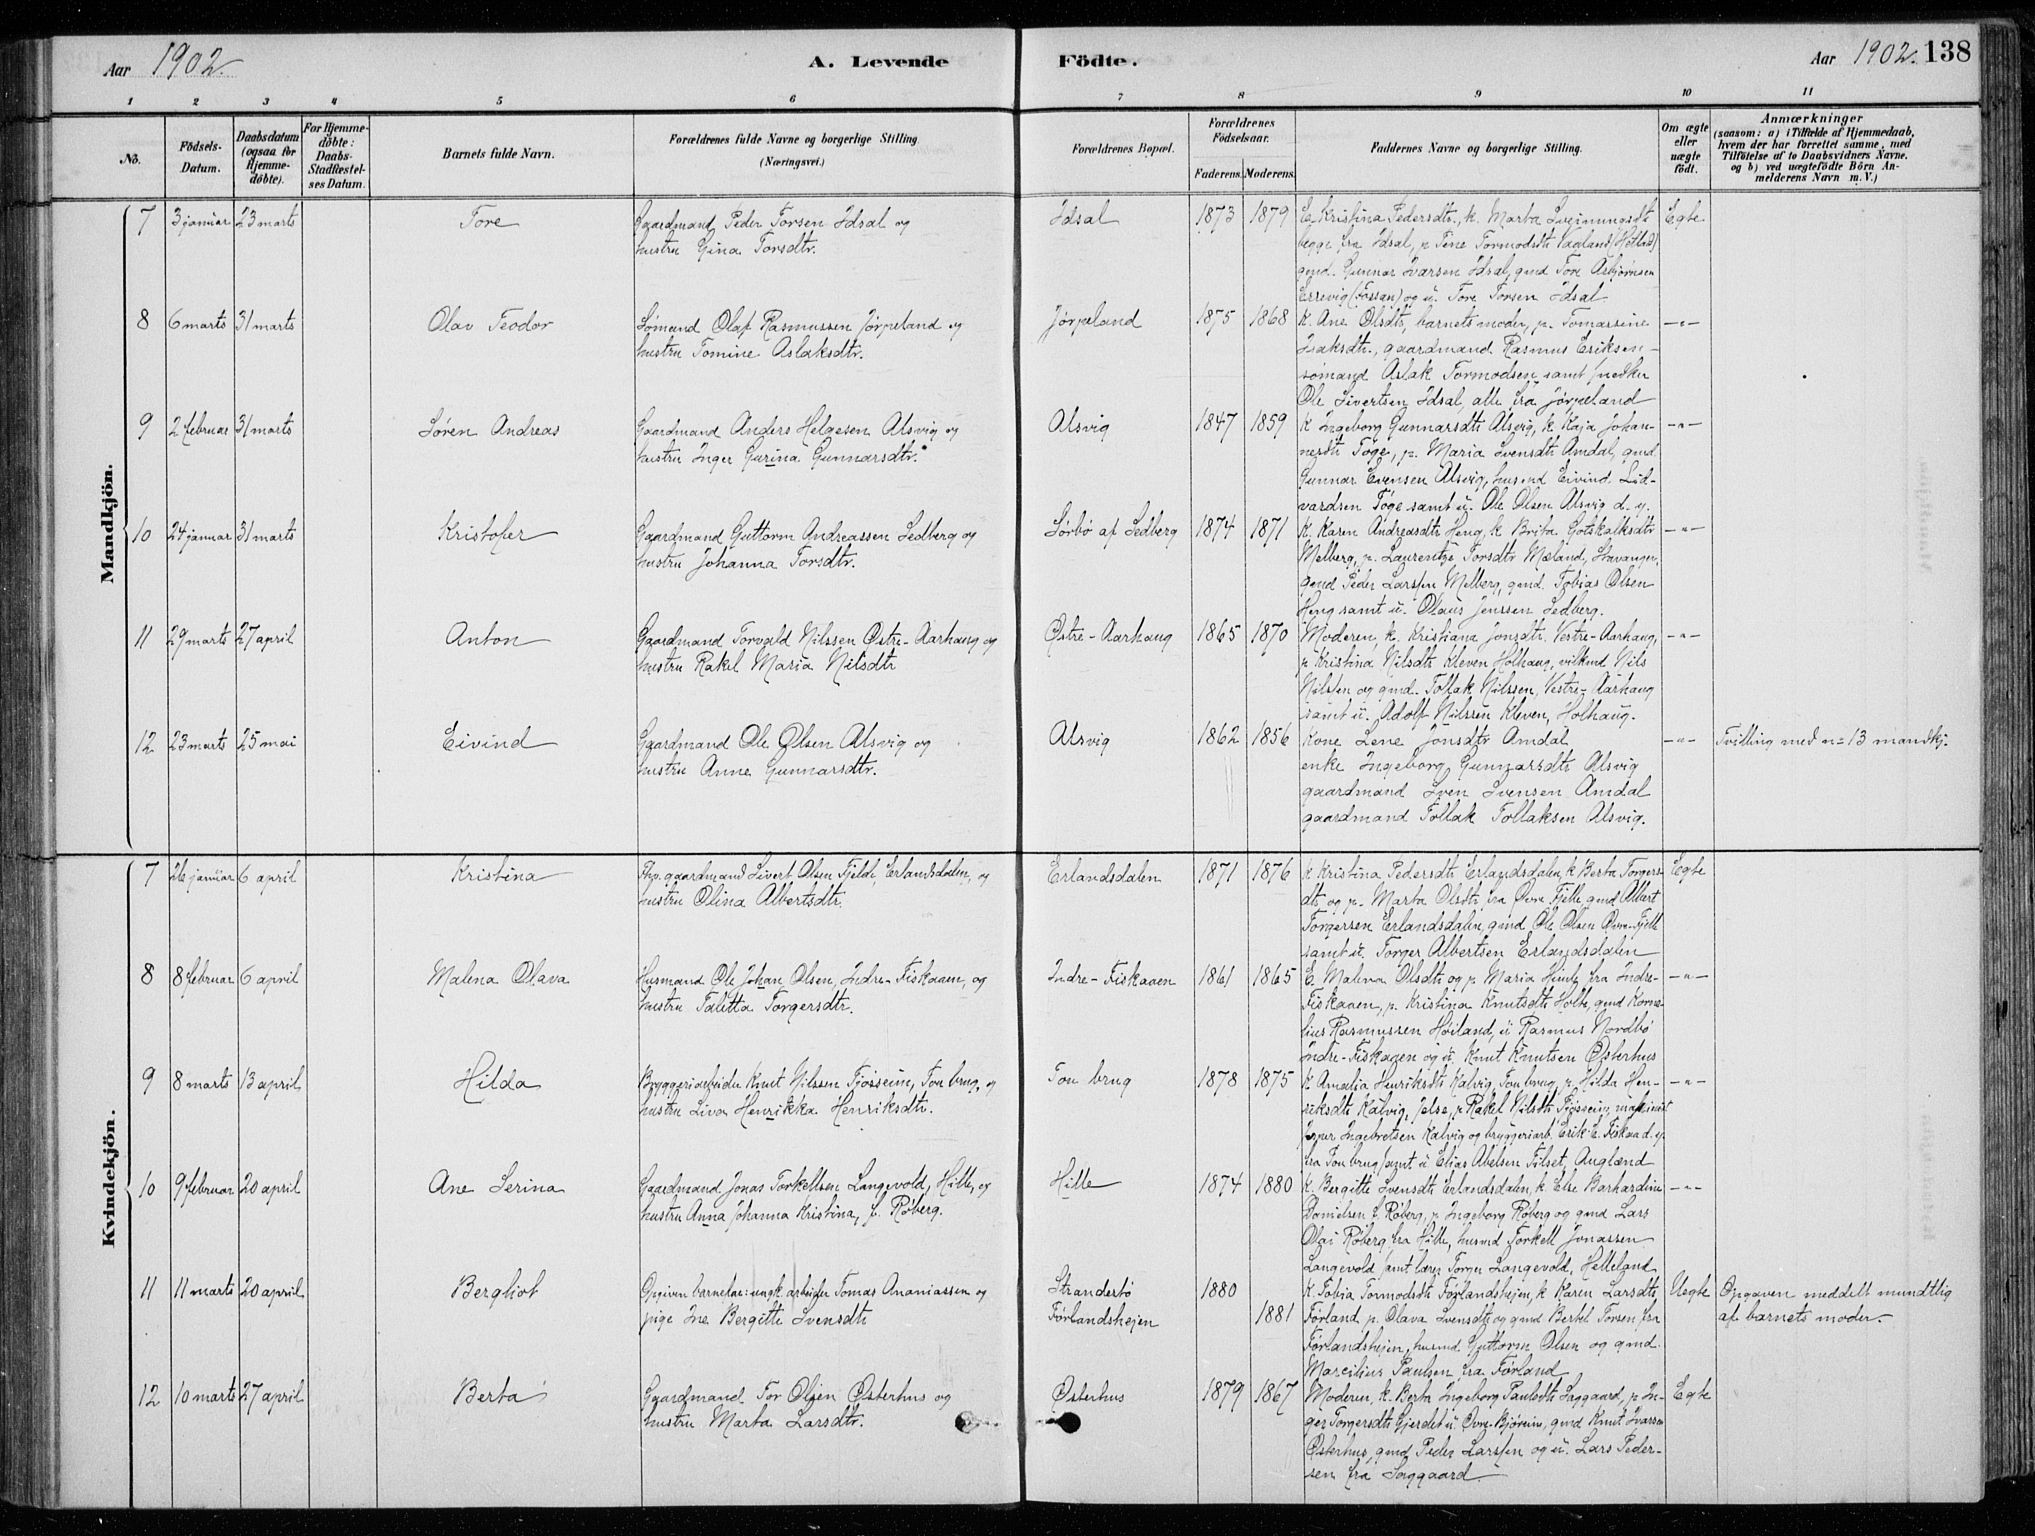 Aar 1902.
A. Levende
Födte.
Aar 1902. 138
1 2 3 4 5 6 7 8 9 10 11
No.
Födsels-
Datum.
Daabsdatum
(ogsaa for
Hjemme-
döbte).
For Hjemme-
döbte:
Daabs-
Stadfæstel-
ses Datum.
Barnets fulde Navn.
Forældrenes fulde Navne og borgerlige Stilling
(Næringsvei.)
Forældrenes Bopæl.
Forældrenes
Födselsaar.
Faderens. Moderens.
Faddernes Navne og borgerlige Stilling.
Om ægte
eller
uægte
födt.
Anmærkninger
(saasom: a) i Tilfælde af Hjemmedaab,
hvem der har forrettet samme, med
Tilföielse af to Daabsvidners Navne.
og b) ved uægtefödte Börn An-
melderens Navn m. V.)
Mandkjön.
7 3 januar 23 marts Tore
Gaardmand Peder Torsen Idsal og
hustru Gina Torsdtr.
Idsal 1873 1879
E. Kristina Pedersdtr., k. Marta Sveinungsdt
begge fra Idsal, p. Tine Tormodsdtr Vaaland (Hetland)
gmd. Gunnar Ivarsen Idsal, gmd Tore Asbjørnsen
Errevig (Fossan) og u. Tore Torsen Idsal
Egte
8 6 marts 31 marts Olav Teodor
Sømand Olaf Rasmussen Jørpeland og
hustru Tomine Aslaksdtr.
Jørpeland 1875 1868
K. Ane Olsdtr, barnets moder, p. Tomassine
Isaksdtr., gaardmand Rasmus Eriksen
sømand Aslak Tormodsen samt snedker
Ole Sivertsen Idsal, alle fra Jørpeland
-"-
9 2 februar 31 marts Sören Andreas
Gaardmand Anders Helgesen Alsvig og
hustru Inger Gurina Gunnarsdtr.
Alsvig 1847 1859
K Ingeborg Gunnarsdtr Alsvig, k. Kaja Johan-
nesdtr Töge, p. Maria Svensdtr Amdal, gmd.
Gunnar Evensen Alsvig, husmd Eivind Lid-
vardsen Töge samt u. Ole Olsen Alsvig d. y.
-"-
10 24 januar 31 marts Kristofer
Gaardmand Guttorm Andreassen Sedberg og
hustru Johanna Torsdtr.
Sörbö af Sedberg 1874 1871
K. Karen Andreasdtr Heng, k Brita Gotskalksdtr
Melberg, p. Laurentze Torsdtr Mæland, Stavanger,
Gmd Peder Larssen Melberg, gmd. Tobias Olsen
Heng samt u. Olaus Jenssen Sedberg.
-"-
11 29 marts 27 april Anton
Gaardmand Torvald Nilssen Østre-Aarhaug og
hustru Rakel Maria Nilsdtr
Østre-Aarhaug 1865 1870
Moderen, k. Kristiana Jonsdtr. Vestre-Aarhaug,
p. Kristina Nilsdtr Kleven Holhaug, vilkmd Nils
Nilssen og gmd. Tollak Nilssen, Vestre-Aarhaug
samt u. Adolf Nilssen Kleven, Holhaug.
-"-
12 23 marts 25 mai Eivind
Gaardmand Ole Olsen Alsvig og
hustru Anne Gunnarsdtr.
Alsvig 1862 1856
Kone Lene Jonsdtr Amdal
enke Ingeborg Gunnarsdtr Alsvig
gaardmand Sven Svensen Amdal
gaardmand Tollak Tollaksen Alsvig.
-"- Tvilling med n= 13 mandkj.
Kvindekjön.
7 26 januar 6 april Kristina
gaardmand Sivert Olsen Fjelde, Erlandsdalen, og
hustru Olina Albertsdtr.
Erlandsdalen 1871 1876
K Kristina Pedersdtr Erlandsdalen, k Berta Torgers-
dtr og p. Marta Olsdtr fra Øvre Tjelle gmd Albert
Torgersen Erlandsdalen, gmd Ole Olsen Øvre-Tjelle
samt u. Torger Albertsen Erlandsdalen
Egte
8 8 februar 6 april Malena Olava
Husmand Ole Johan Olsen, Indre-Fiskaaen, og
hustru Talitta Torgersdtr.
Indre-Fiskaaen 1861 1865
E. Malena Olsdtr og p. Maria fra Indre-
Fiskaaen, p. Kristina Knutsdtr Holte, gmd Korne-
lius Rasmussen Høiland, u Rasmus Nordbø
Indre-Fiskaaen og u. Knut Knutsen Østerhus
-"-
9 8 marts 13 april Hilda
Bryggeriarbeider Knut Nilssen Tjøsseim, Tou brug, og
hustru Liva Henrikka Henriksdtr.
Tou brug 1878 1875
K Amalia Henriksdtr Kalvig, Tou brug, p. Hilda Hen-
riksdtr Kalvig, Jelse, p Rakel Nilsdtr Tjøsseim, maskinist
Jesper Ingebretsen Kalvig og bryggeriarb. Erik E. Fiskaa d. y.
fra Tou brug samt u Elias Abelsen Tilset, Augland
-"-
10 9 februar 20 april Ane Serina
Gaardmand Jonas Torkellsen Langevold, Hille, og
hustru Anna Johanna Kristina, f. Røberg.
Hille 1874 1880
K. Bergitte Svensdtr Erlandsdalen, k. Else Barhardine
Danielsen f. Røberg, p. Ingeborg Røberg og gmd Lars
Olai Røberg fra Hille, husmd Torkell Jonassen
Langevold samt lærer Torger Langevold, Helleland
-"-
11 11 marts 20 april Bergliot
Opgiven barnefar: ungk. arbeider Tomas Ananiassen og
pige Ine Bergitte Svensdtr
Strandestø 1880
Förlandshejen 1881
K. Tobia Tormodsdtr Förlandshejen, k Karen Larsdtr,
Förland p. Olava Svensdtr og gmd Bertel Torsen, fra
Förlandshejen, husmd Guttorm Olsen og gmd.
Marcilius Paulsen fra Förland
Uegte Opgaven meddelt mundtlig
af barnets moder.
12 10 marts 27 april Berta
Gaardmand Tor Olsen Østerhus og
hustru Marta Larsdtr.
Østerhus 1879 1867
Moderen k. Berta Ingeborg Paulsdtr Saggaard, p. In-
ger Torgersdtr Gjerdet u. Øvre-Björeim, gmd Knut Ivarsen
Østerhus, gmd Peder Larssen og u. Lars Peder-
sen fra Saggaard
Egte